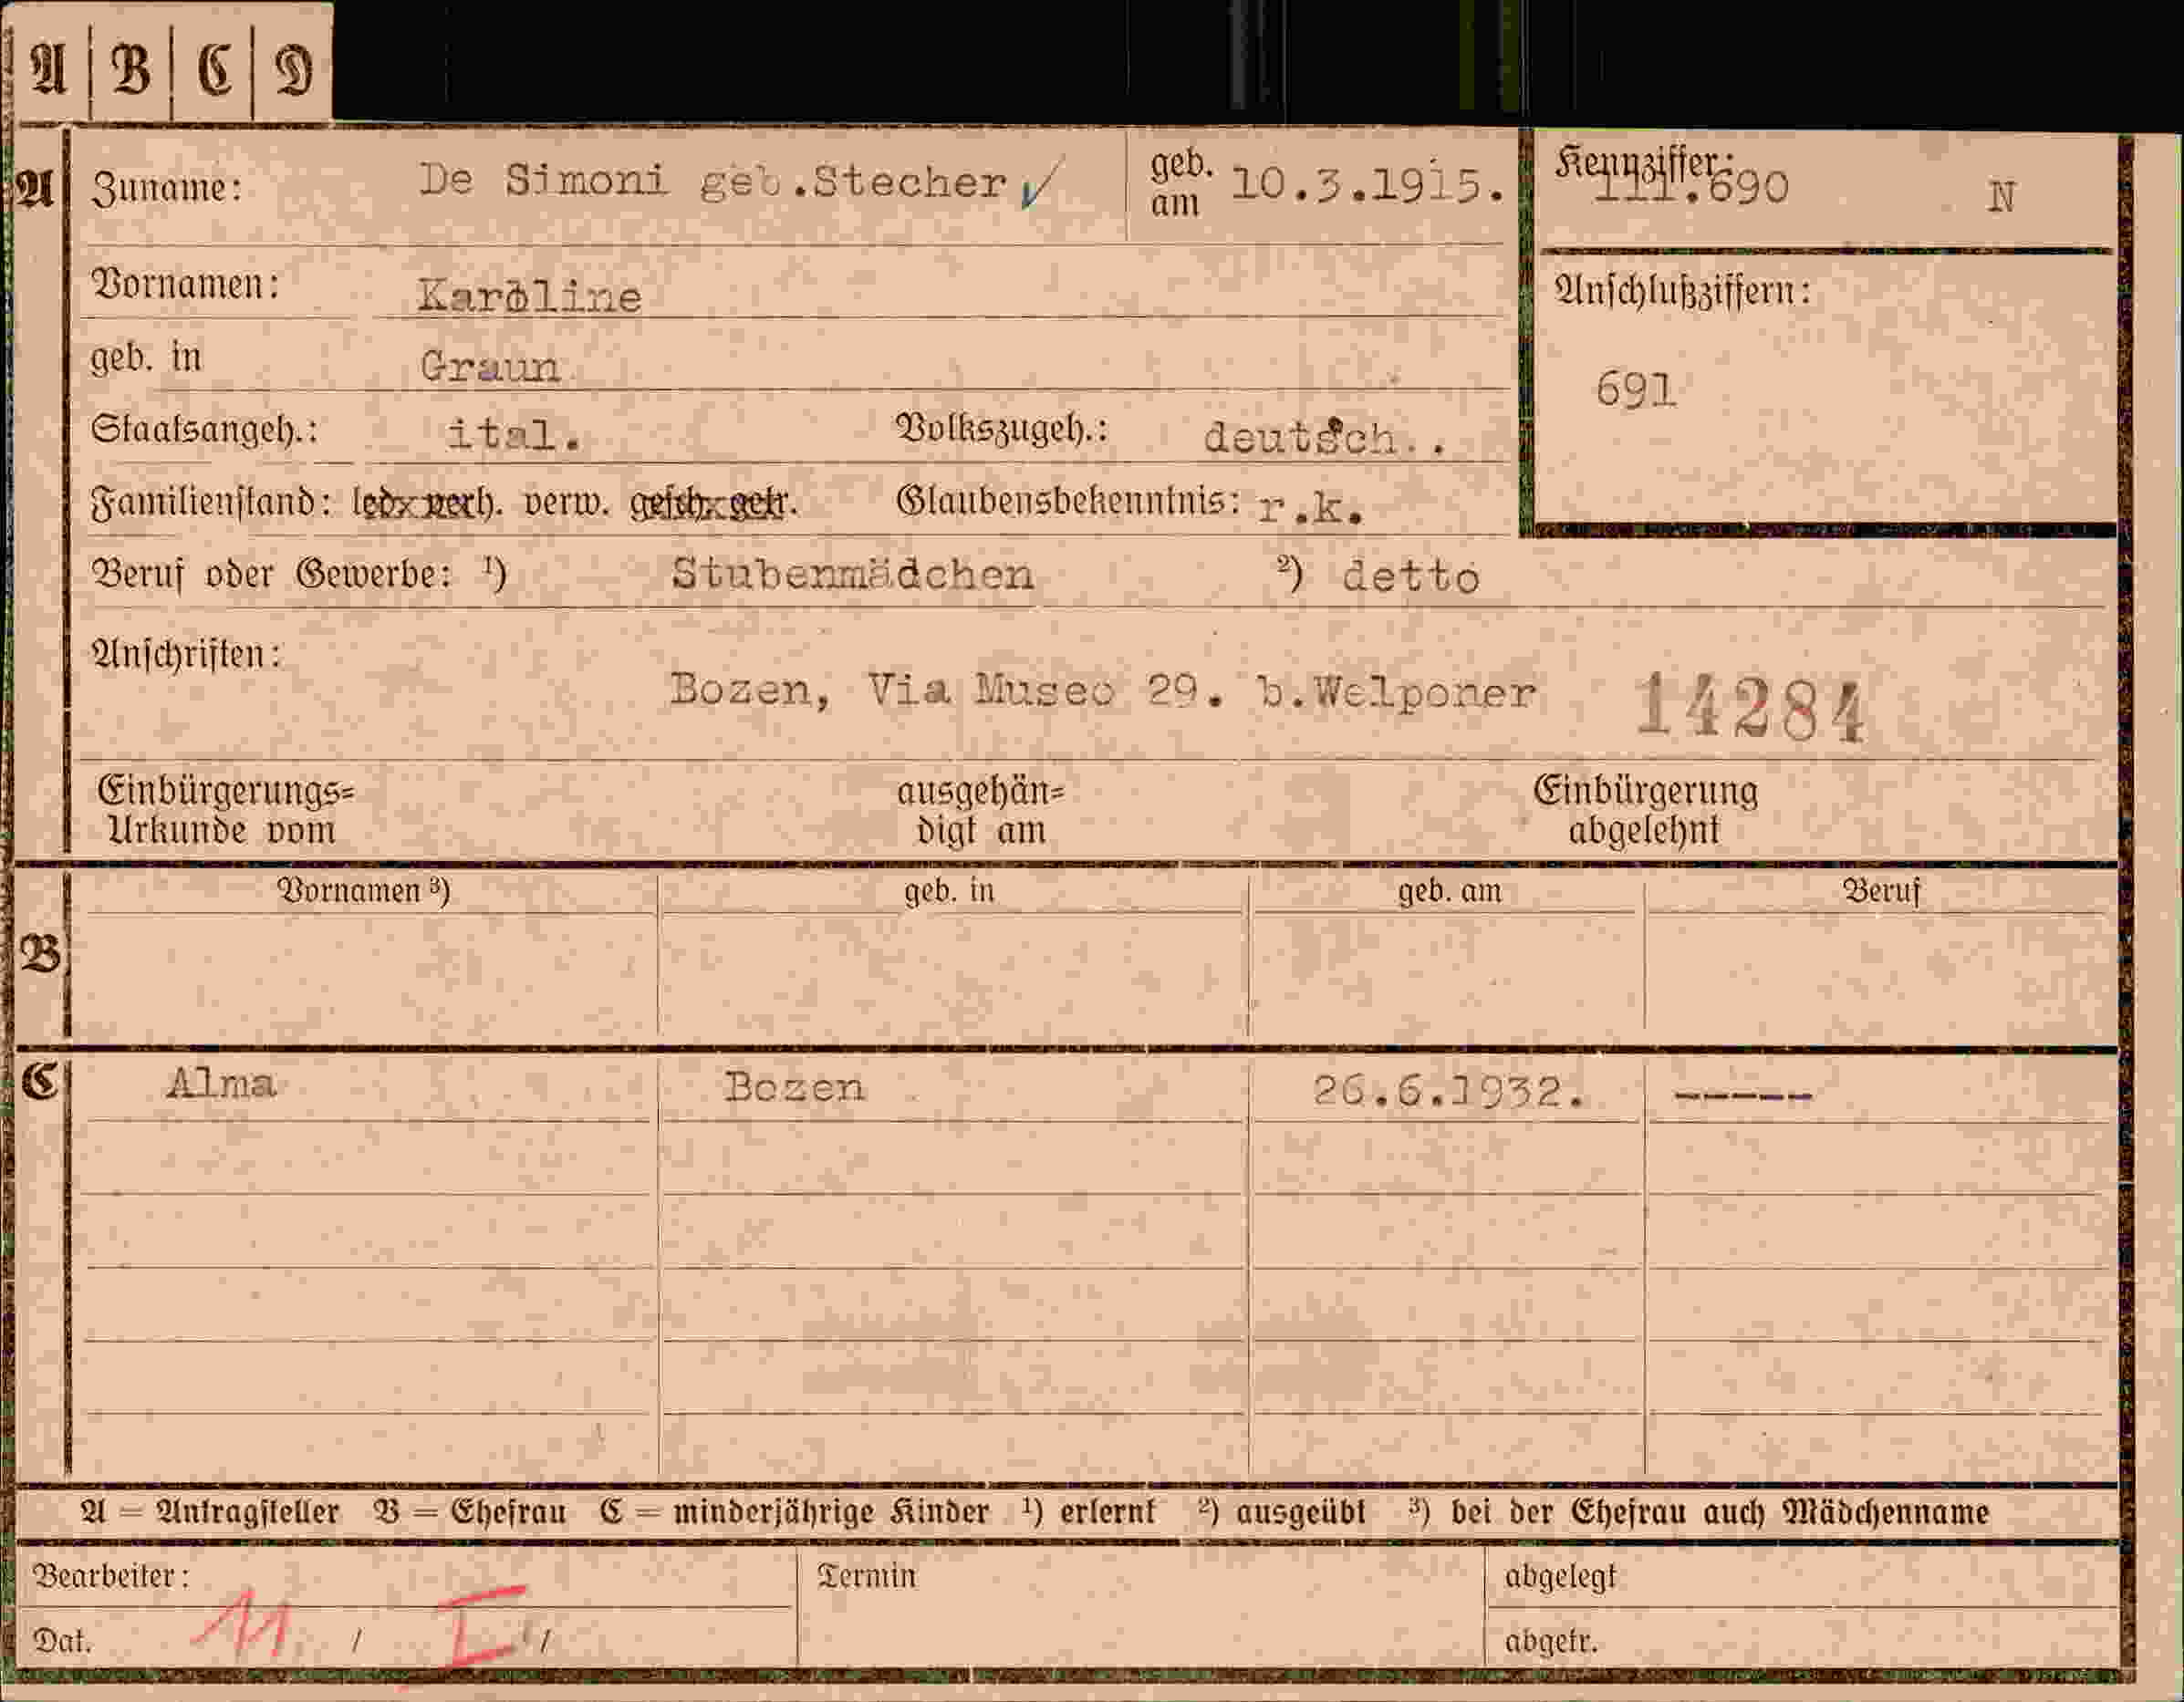 A | B | C | D
A Zuname: De Simoni geb.Stecher geb. am 10.3.1915. Kennziffer: 111.690 N
Vornamen: Karoline Anschlußziffern:
geb. in Graun 691
Staatsangeh.: ital. Volkszugeh.: deutsch..
Familienstand: led. verh. verw. gesch. getr. Glaubensbekenntnis: r.k.
Beruf oder Gewerbe: ¹) Stubenmädchen ²) detto
Anschriften:
Bozen, Via Museo 29. b.Welponer 14284
Einbürgerungs= ausgehän= Einbürgerung
Urkunde vom digt am abgelehnt
Vornamen ³) geb. in geb. am Beruf
B
C Alma Bozen 26.6.1932. -----
A = Antragsteller B = Ehefrau C = minderjährige Kinder ¹) erlernt ²) ausgeübt ³) bei der Ehefrau auch Mädchenname
Bearbeiter: Termin abgelegt
Dat. 11 / I / abgetr.